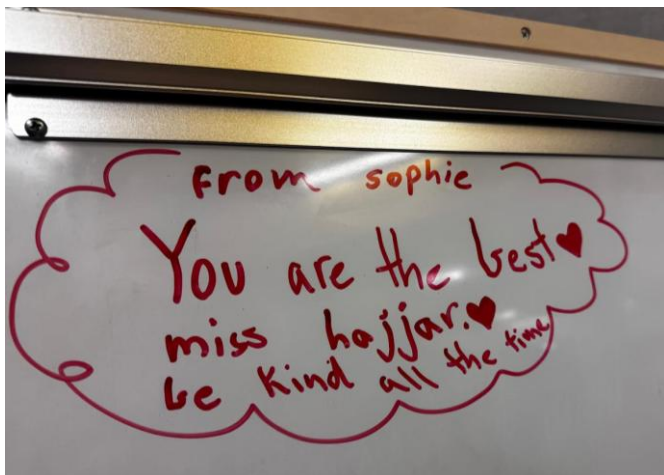 From sophie
You are the best♥
miss hajjar.♥
be kind all the time